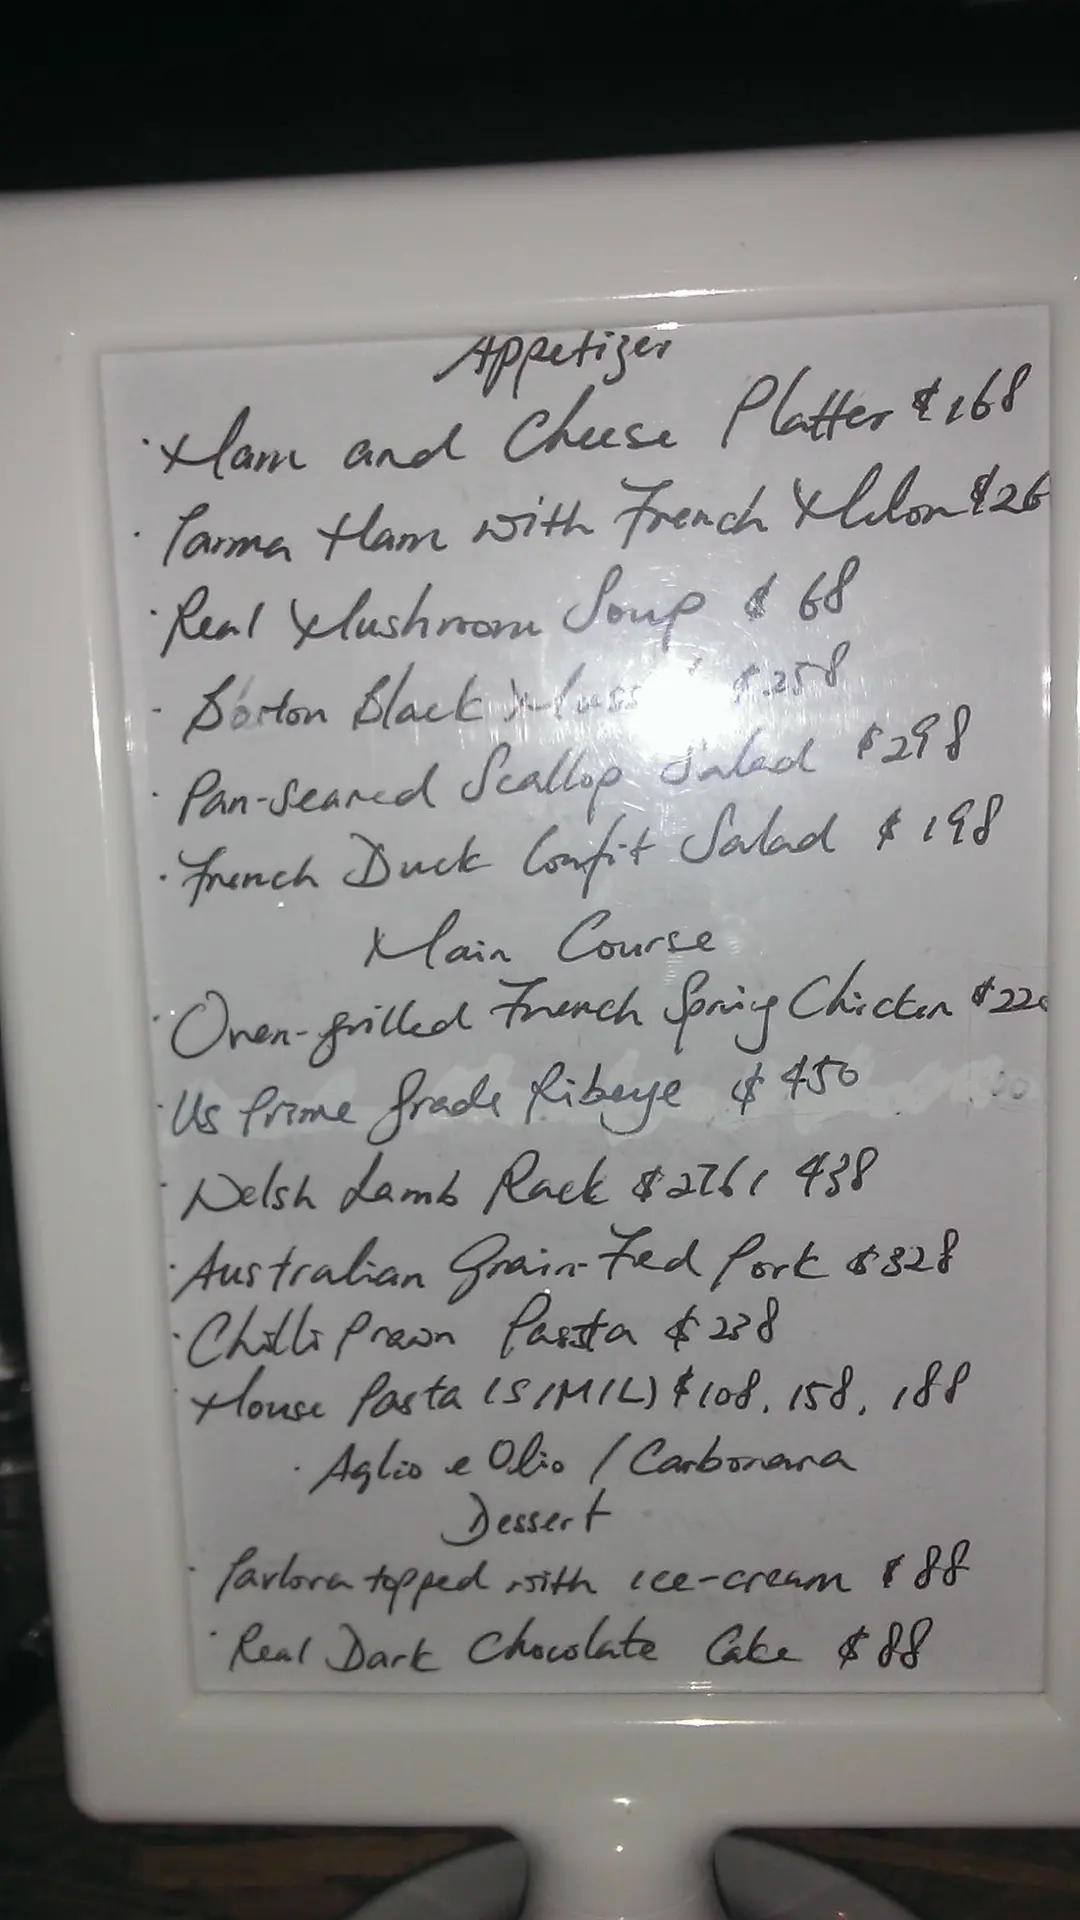 Appetizer
· Ham and Cheese Platter $168
· Parma Ham with French Melon $26
· Real Mushroom Soup $68
· Boston Black $258
· Pan-Seared Scallop Salad $298
· French Duck Confit Salad $198
Main Course
· Oven-grilled French Spring Chicken $22
· US Prime Grade Ribeye $450
· Welsh Lamb Rack $276, 438
· Australian Grain-Fed Pork $328
· Chilli Prawn Pasta $238
· House Pasta (S/M/L) $108, 158, 188
· Aglio e Olio / Carbonara
Dessert
· Pavlova topped with ice-cream $88
· Real Dark Chocolate Cake $88